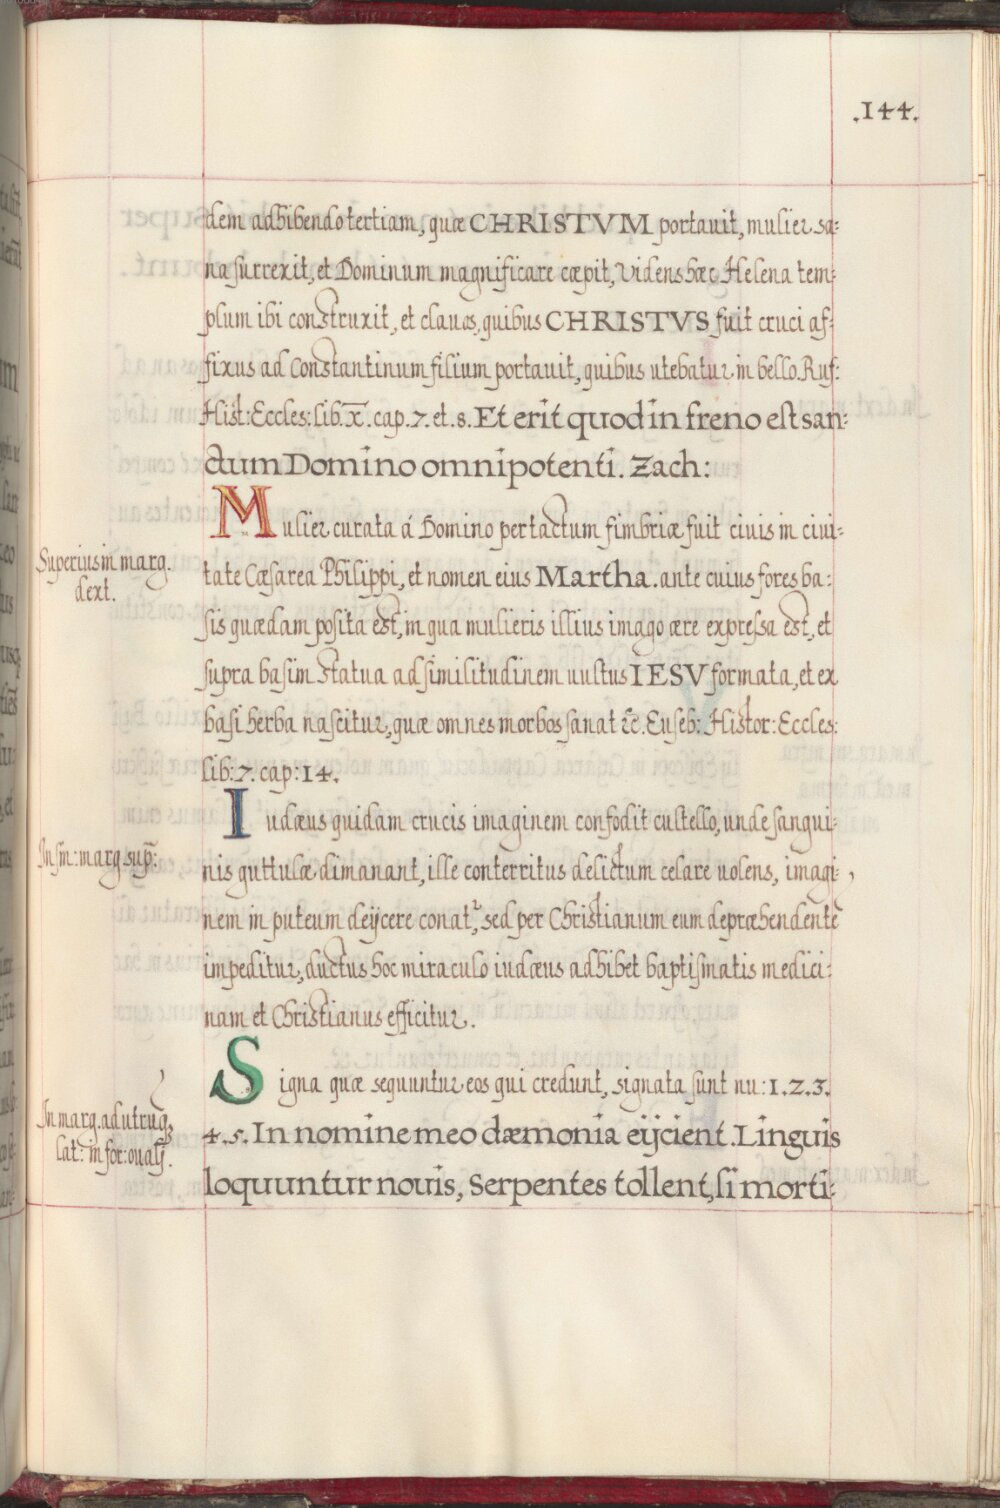 .144.
dem adhibendo tertiam, quæ CHRISTVM portauit, mulier sa:
na surrexit, et Dominum magnificare cæpit, Videns hæc Helena tem:
plum ibi construxit, et clauos, quibus CHRISTVS fuit cruci af:
fixus ad Constantinum filium portauit, quibus utebatur in bello. Ruf:
Hist: Eccles: lib. x̅. cap. 7. et. 8. Et erit quod in freno est san:
ctum Domino omnipotenti. Zach:
Mulier curata á Domino per tactum fimbriæ fuit ciuis in ciui:
Superius in marg.
dext.
tate Cæsarea Philippi, et nomen eius Martha. ante cuius fores ba:
sis quædam posita est, in qua mulieris illius imago ære expressa est, et
supra basim statua ad similitudinem uultus IESV formata, et ex
basi herba nascitur, quæ omnes morbos sanat &c. Euseb: Histor: Eccles:
lib: 7. cap: 14.
Iudæus quidam crucis imaginem confodit cultello, unde sangui:
In sin: marg. sup̅:
nis guttulæ dimanant, ille conterritus delictum celare uolens, imagi:
nem in puteum deijcere conat͛, sed per Christianum eum depræhendente
impeditur, ductus hoc miraculo iudæus adhibet baptismatis medici:
nam et Christianus efficitur.
Signa quæ sequuntur eos qui credunt, signata sunt nu: 1. 2. 3.
In marg. ad utruq3
lat: in for: oualj.
4. 5. In nomine meo dæmonia eijcient. Linguis
loquuntur nouis, Serpentes tollent, si morti: